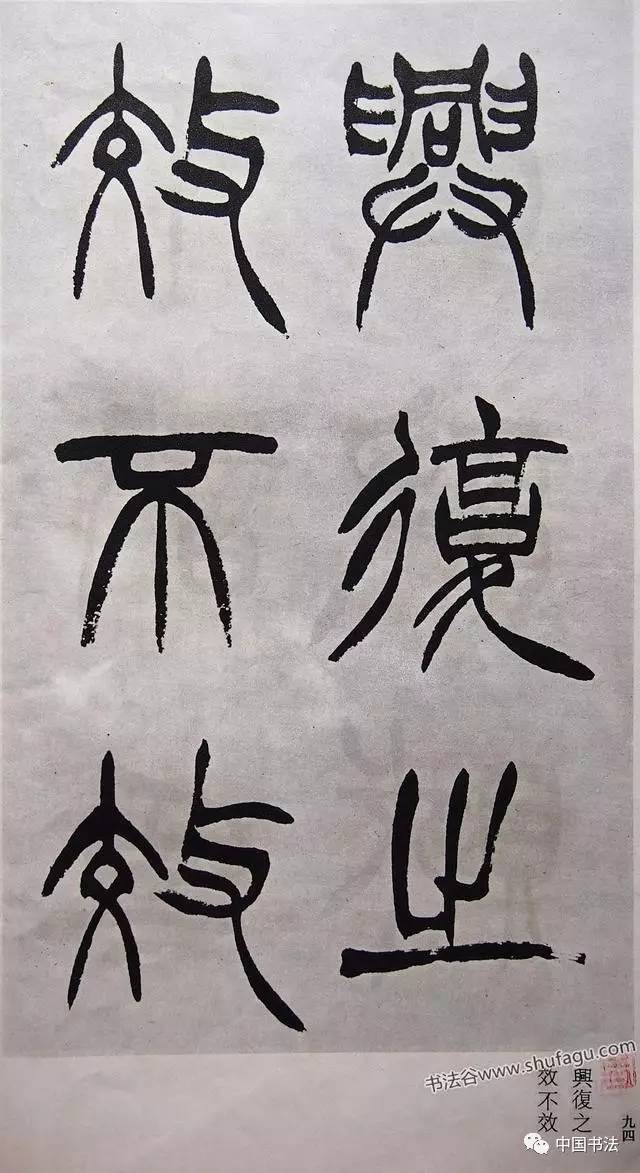 興復之
效不效
書法谷www.shufagu.com
興復之
效不效
九四
中国书法